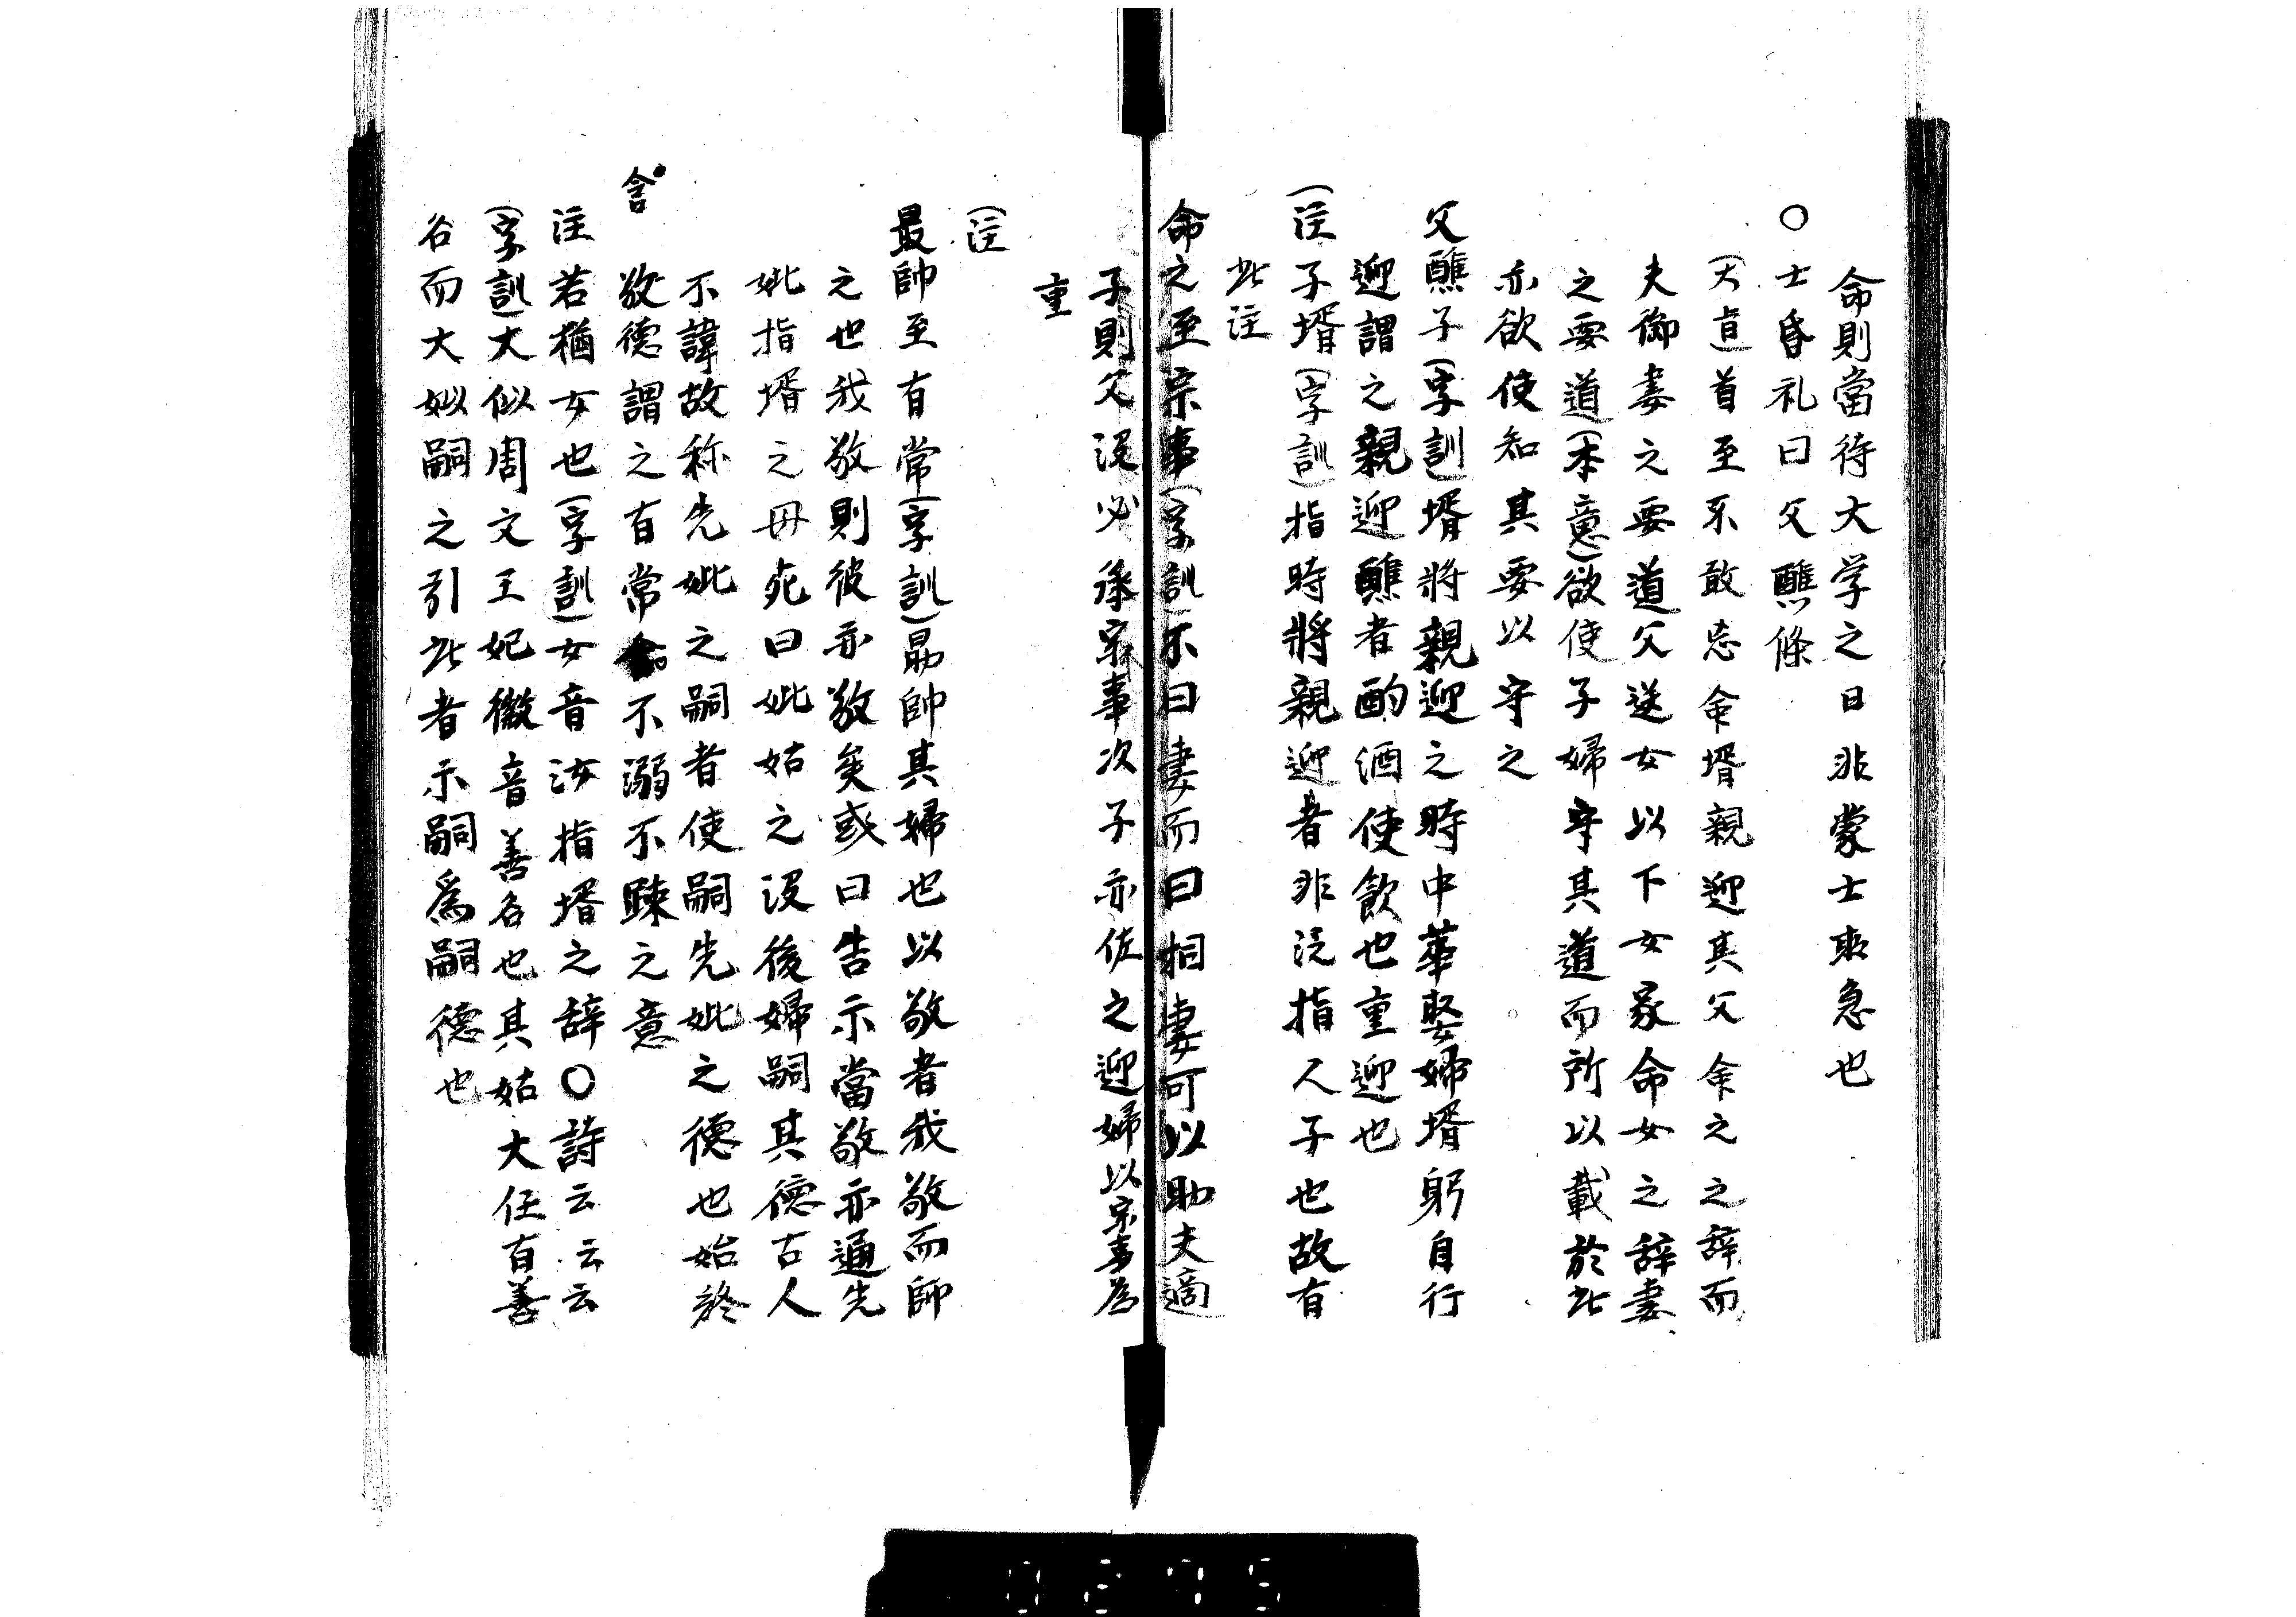 命則當待大学之日非蒙士取急也
○士昏礼曰父醮條
(大㫖)首至不敢忘命壻親迎其父命之之辞而
夫御妻之要道父送女以下女家命女之辞妻
之要道(本意)欲使子婦守其道而所以載於此
亦欲使知其要以守之
父醮子(字訓)壻將親迎之時中華娶婦壻躬自行
迎謂之親迎醮者酌酒使飲也重迎也
(注)子壻(字訓)指時將親迎者非泛指人子也故有
此注
命之至宗事(字訓)不曰妻而曰相妻可以助夫適
子則父没必承宗事次子亦佐之迎婦以宗事為
重
(注)
最帥至有常(字訓)勗帥其婦也以敬者我敬而帥
之也我敬則彼亦敬矣或曰告示當敬亦通先
妣指壻之母死曰妣姑之没後婦嗣其德古人
不諱故称先妣之嗣者使嗣先妣之德也始終
敬德謂之有常 不溺不踈之意
注若猶女也(字訓)女音汝指壻之辞○詩云云云
(字訓)大似周文王妃徽音善名也其姑大任有善
名而大姒嗣之引此者示嗣為嗣德也